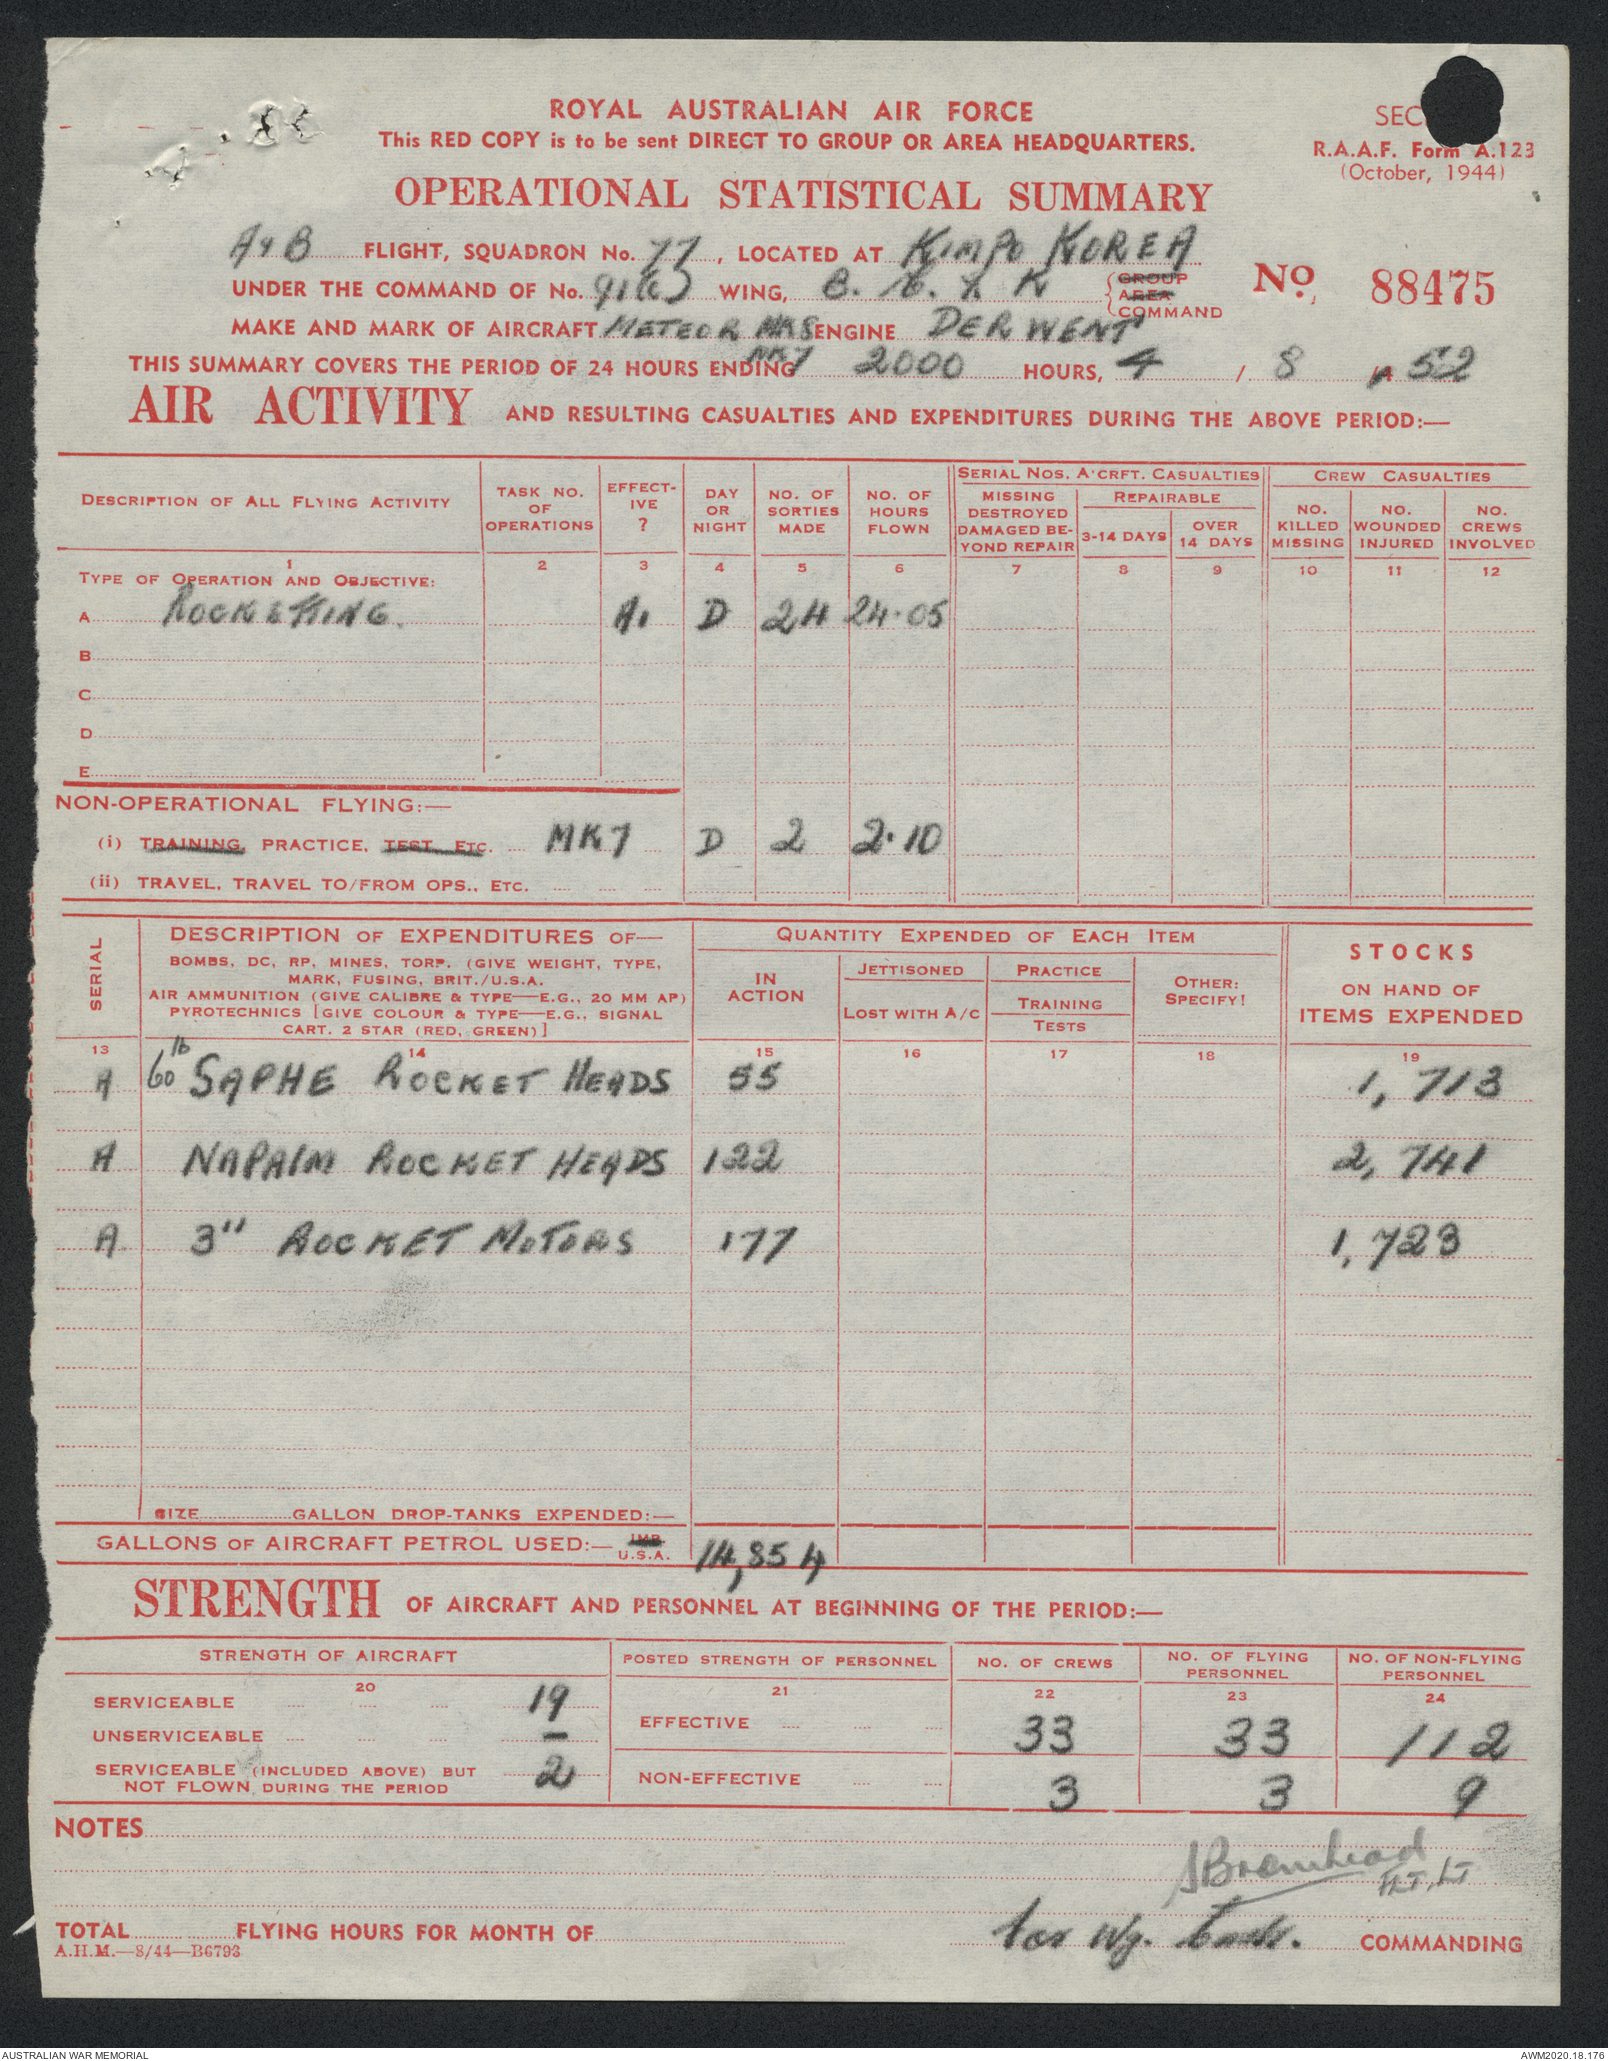 ROYAL AUSTRALIAN AIR FORCE
This RED COPY is to be sent DIRECT TO GROUP OR AREA HEADQUARTERS.
SEC
R.A.A.F. Form A.123
(October, 1944)
OPERATIONAL STATISTICAL SUMMARY
A & B FLIGHT, SQUADRON No. 77, LOCATED AT KIMPO KOREA
UNDER THE COMMAND OF No. 91(C) WING, GROUP AREA COMMAND
No. 88475
MAKE AND MARK OF AIRCRAFT METEOR MK8 ENGINE DERWENT
THIS SUMMARY COVERS THE PERIOD OF 24 HOURS ENDING MK7 2000 HOURS, 4 / 8 / 52
AIR ACTIVITY AND RESULTING CASUALTIES AND EXPENDITURES DURING THE ABOVE PERIOD:—
DESCRIPTION OF ALL FLYING ACTIVITY
TASK NO. OF OPERATIONS
EFFECT-IVE ?
DAY OR NIGHT
NO. OF SORTIES MADE
NO. OF HOURS FLOWN
SERIAL NOS. A'CRFT. CASUALTIES
MISSING DESTROYED DAMAGED BE-YOND REPAIR
REPAIRABLE
3-14 DAYS
OVER 14 DAYS
CREW CASUALTIES
NO. KILLED MISSING
NO. WOUNDED INJURED
NO. CREWS INVOLVED
1 2 3 4 5 6 7 8 9 10 11 12
TYPE OF OPERATION AND OBJECTIVE:
A ROCKETTING. A1 D 24 24.05
B
C
D
E
NON-OPERATIONAL FLYING:—
(i) TRAINING, PRACTICE, TEST, ETC. MK7 D 2 2.10
(ii) TRAVEL, TRAVEL TO/FROM OPS., ETC.
SERIAL
DESCRIPTION OF EXPENDITURES OF—
BOMBS, DC, RP, MINES, TORP. (GIVE WEIGHT, TYPE,
MARK, FUSING, BRIT./U.S.A.
AIR AMMUNITION (GIVE CALIBRE & TYPE—E.G., 20 MM AP)
PYROTECHNICS [GIVE COLOUR & TYPE—E.G., SIGNAL
CART. 2 STAR (RED, GREEN)]
QUANTITY EXPENDED OF EACH ITEM
IN ACTION
JETTISONED
LOST WITH A/C
PRACTICE
TRAINING
TESTS
OTHER: SPECIFY!
STOCKS
ON HAND OF
ITEMS EXPENDED
13 14 15 16 17 18 19
A 60 lb SAPHE ROCKET HEADS 55 1,713
A NAPALM ROCKET HEADS 122 2,741
A 3" ROCKET MOTORS 177 1,723
SIZE GALLON DROP-TANKS EXPENDED:—
GALLONS OF AIRCRAFT PETROL USED:— IMP. U.S.A. 14,854
STRENGTH OF AIRCRAFT AND PERSONNEL AT BEGINNING OF THE PERIOD:—
STRENGTH OF AIRCRAFT
POSTED STRENGTH OF PERSONNEL
NO. OF CREWS
NO. OF FLYING PERSONNEL
NO. OF NON-FLYING PERSONNEL
20 21 22 23 24
SERVICEABLE 19
UNSERVICEABLE —
SERVICEABLE (INCLUDED ABOVE) BUT
NOT FLOWN DURING THE PERIOD 2
EFFECTIVE 33 33 112
NON-EFFECTIVE 3 3 9
NOTES
Bromhead
FLT, LT
TOTAL FLYING HOURS FOR MONTH OF
for Wg. Cmdr. COMMANDING
A.H.M.—8/44—B6793
AUSTRALIAN WAR MEMORIAL
AWM2020.18.176